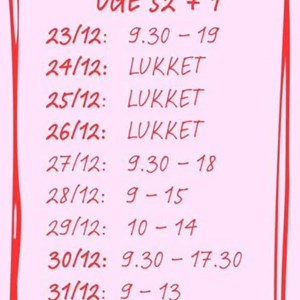 UGE 52 + 1
23/12: 9.30 – 19
24/12: LUKKET
25/12: LUKKET
26/12: LUKKET
27/12: 9.30 – 18
28/12: 9 – 15
29/12: 10 – 14
30/12: 9.30 – 17.30
31/12: 9 – 13